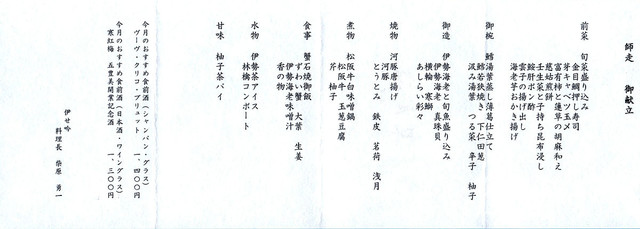 師走 御献立
前菜 旬菜盛り込み
芽キャベツ玉〆
金目鯛押し寿司
富有柿と蓮草の胡麻和え
慈姑煎餅
壬生菜と子持ち昆布浸し
鮟肝ポン酢
雲子の揚げ出し
海老芋おかき揚げ
御椀 鱈湯葉蒸し薄葛仕立て
鱈若狭焼き 下仁田葱
汲み湯葉 つる菜 辛子 柚子
御造 伊勢海老と旬魚盛り込み
伊勢海老 真珠貝
横輪 寒鰤
あしらい彩々
焼物 河豚唐揚げ
河豚
とうとうみ 鉄皮 茗荷 浅月
煮物 松阪牛白味噌鍋
松阪牛 玉葱豆腐
芹 柚子
食事 蟹石焼御飯
ずわい蟹 大葉 生姜
伊勢海老味噌汁
香の物
水物 伊勢茶アイス
林檎コンポート
甘味 柚子茶パイ
今月のおすすめ食前酒(シャンパン・グラス)
ヴーヴ・クリコ・ブリュット 一、四〇〇円
今月のおすすめ食前酒(日本酒・ワイングラス)
寒紅梅 五豊美開業記念酒 一、三〇〇円
伊せ吟
料理長 柴原 勇一